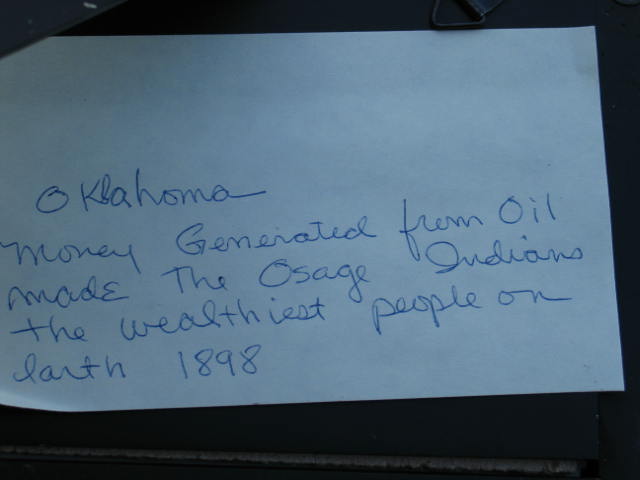 Oklahoma
Money Generated from Oil
made The Osage Indians
the wealthiest people on
Earth 1898